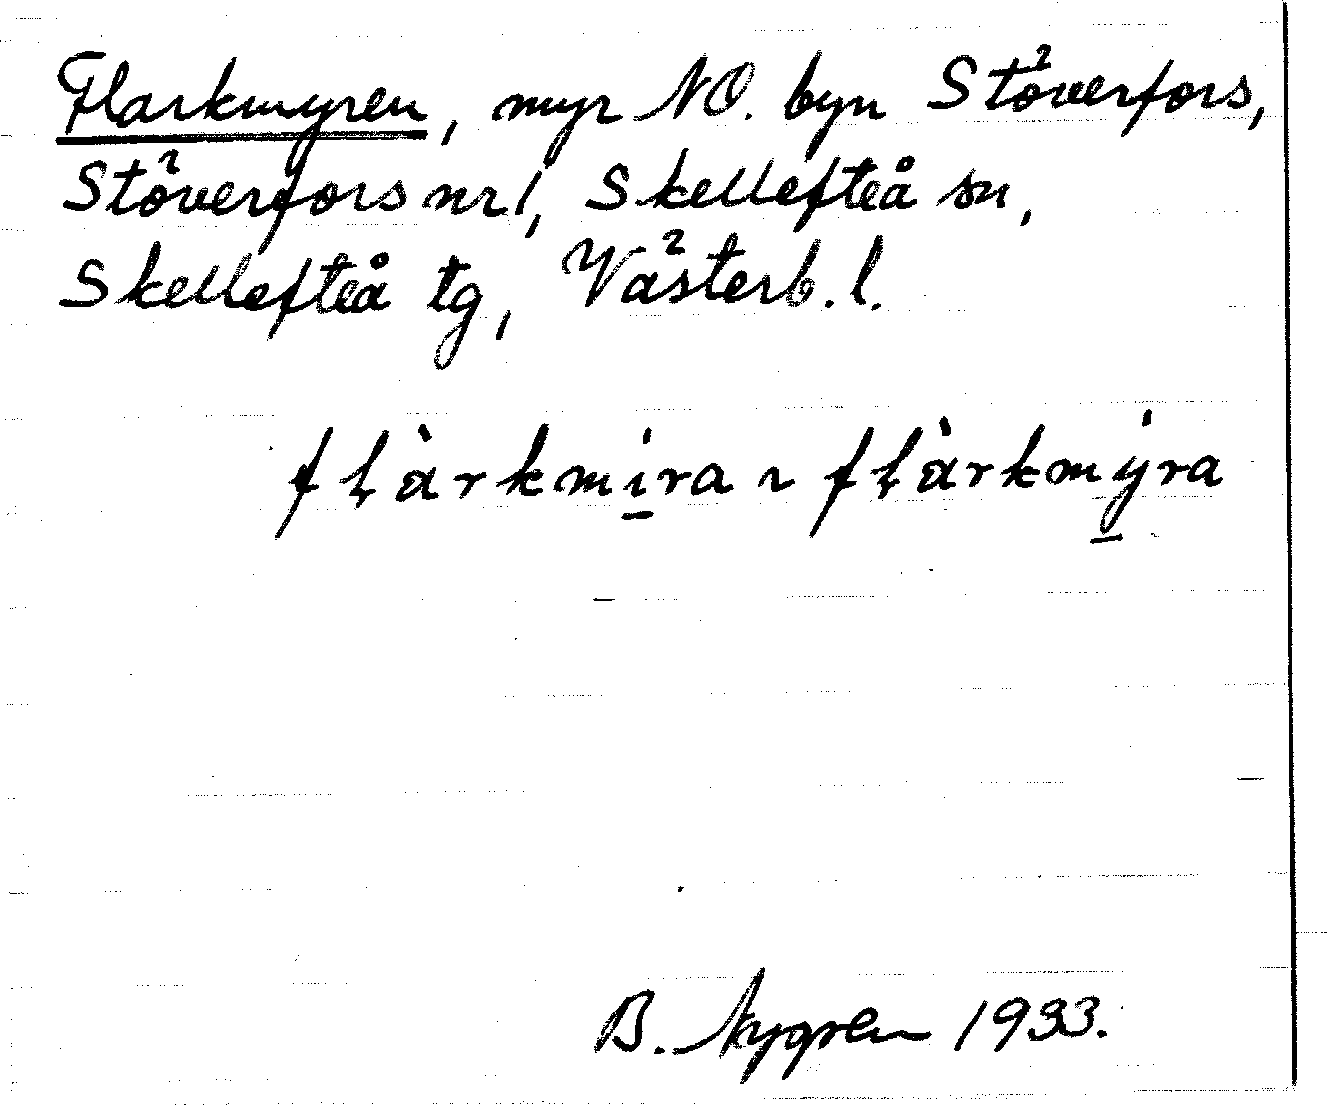 Flarkmyren, myr NO. byn Stöverfors,
Stöverfors nr 1, Skellefteå sn,
Skellefteå tg, Västerb. l.
fḷàrkmi̱ra ~ fḷàrkmy̱ra
B. Nygren 1933.